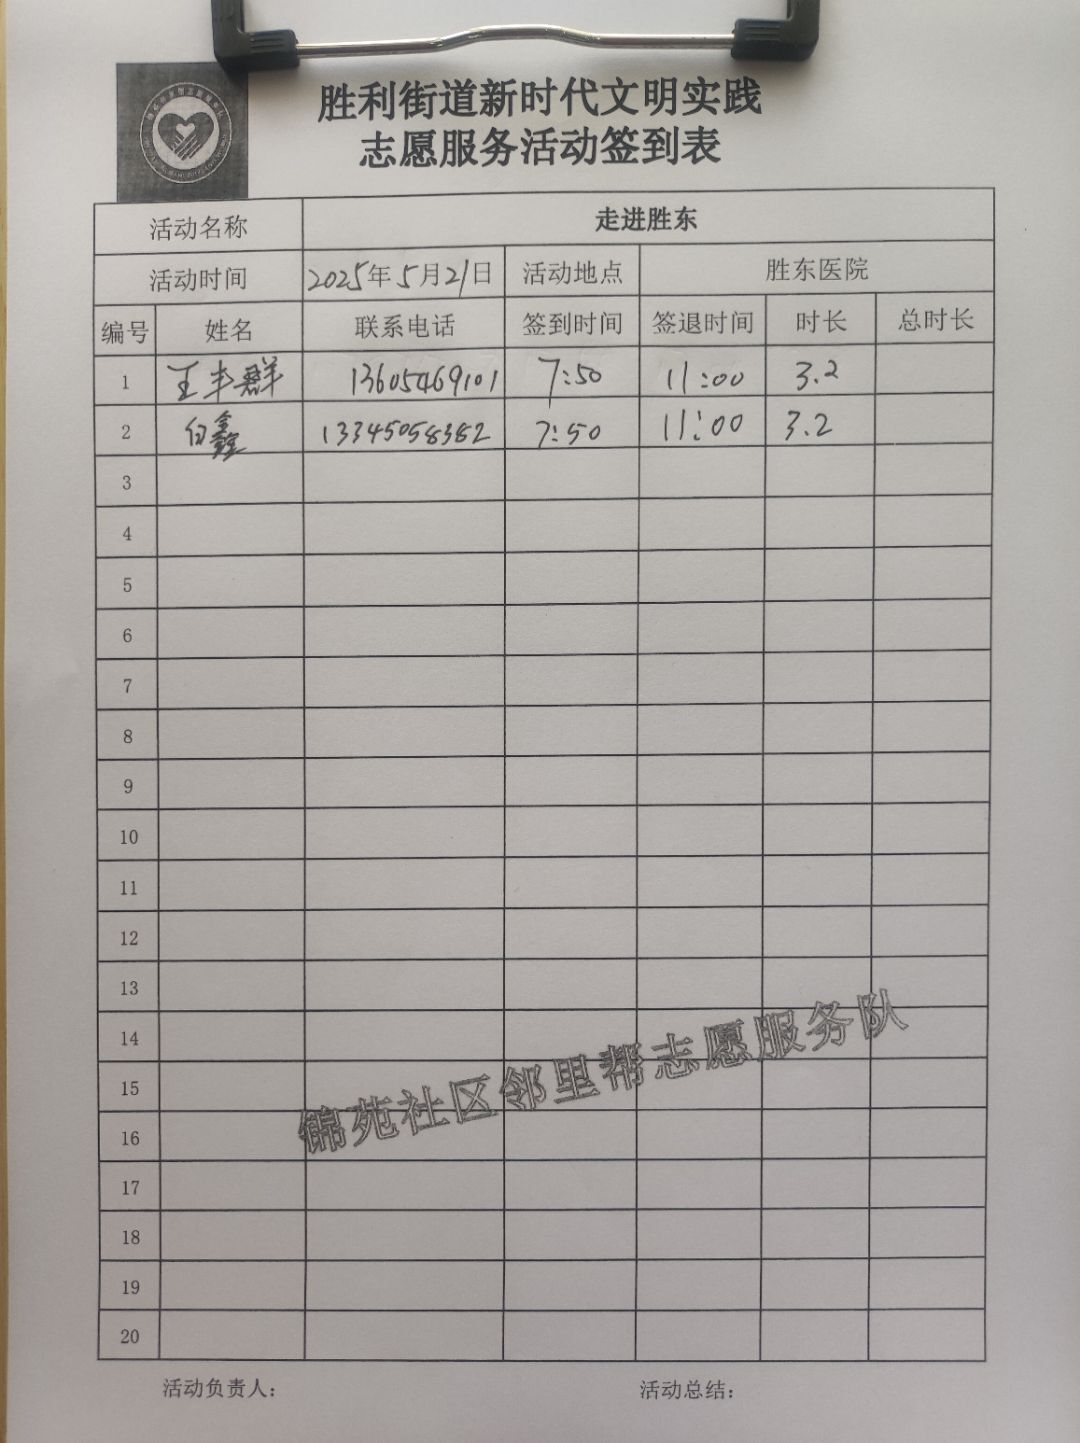 胜利街道新时代文明实践
志愿服务活动签到表
活动名称 走进胜东
活动时间 2025年5月21日 活动地点 胜东医院
编号 姓名 联系电话 签到时间 签退时间 时长 总时长
1 王丰群 13605469101 7:50 11:00 3.2
2 白鑫 13345058382 7:50 11:00 3.2
3
4
5
6
7
8
9
10
11
12
13
14
15
16
17
18
19
20
锦苑社区邻里帮志愿服务队
活动负责人： 活动总结：